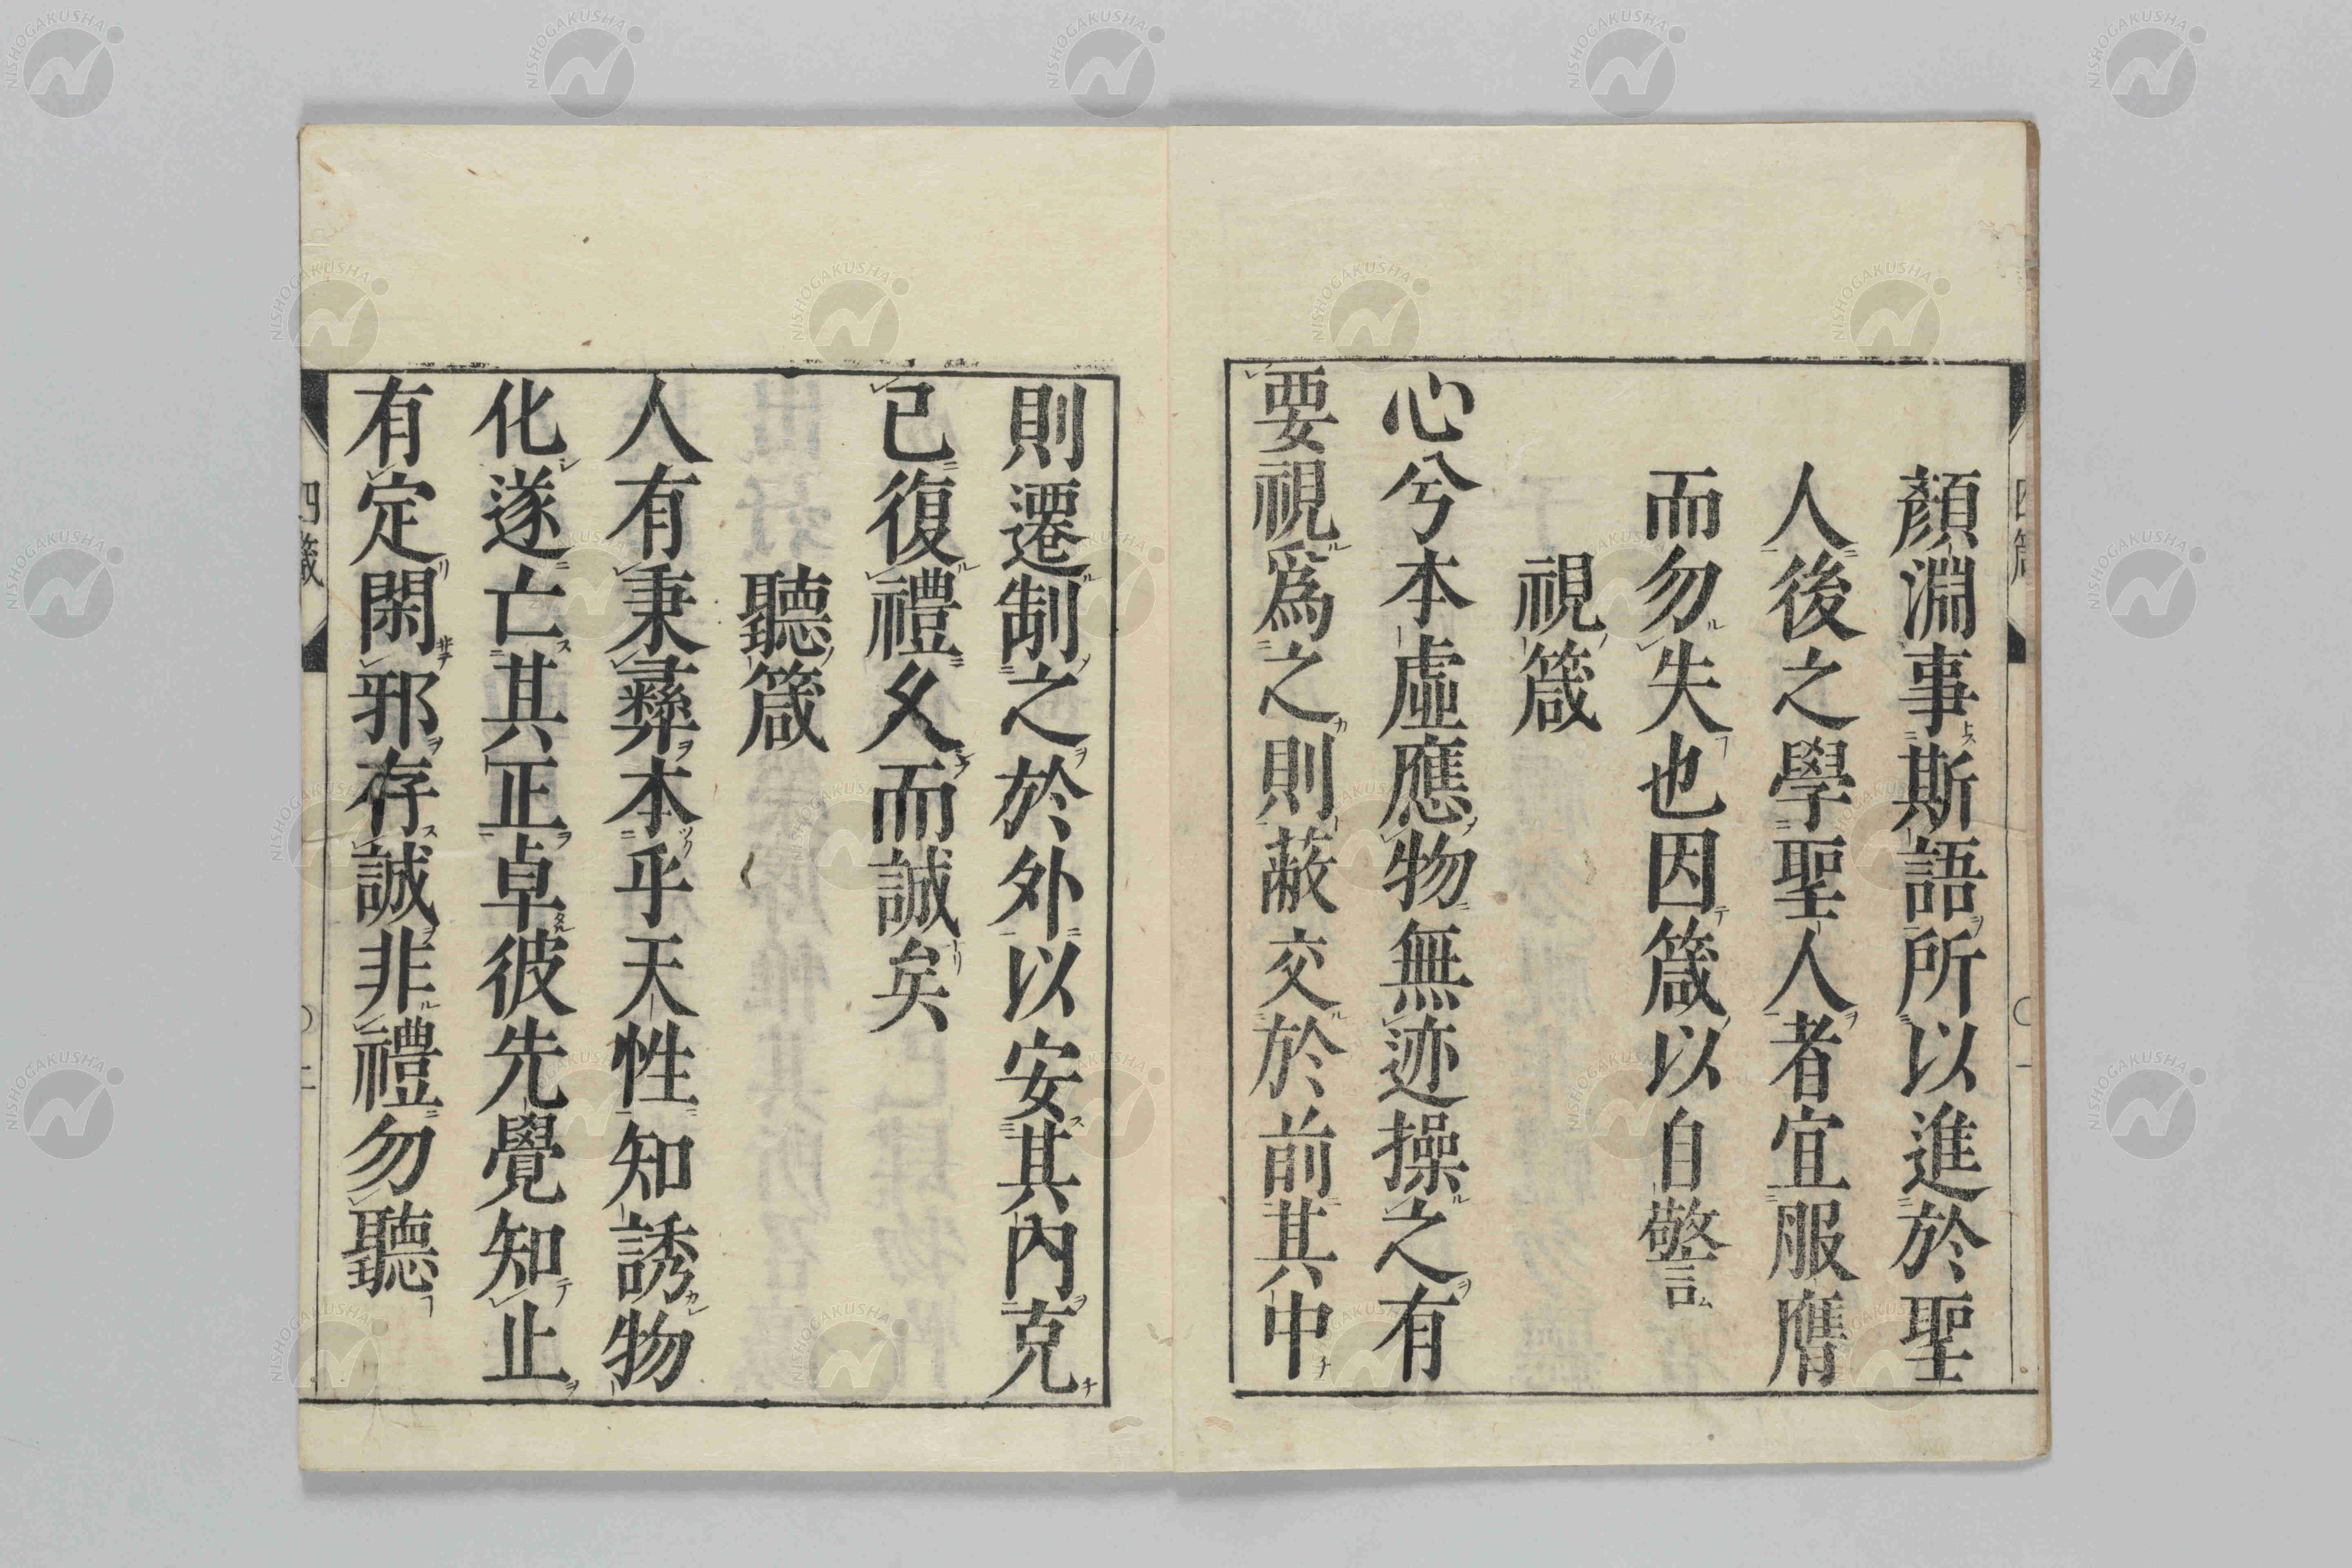 顏淵事斯語所以進於聖
人後之學聖人者宜服膺
而勿失也因箴以自警
視箴
心兮本虛應物無迹操之有
要視爲之則蔽交於前其中
則遷制之於外以安其內克
己復禮久而誠矣
聽箴
人有秉彝本乎天性知誘物
化遂亡其正卓彼先覺知止
有定閑邪存誠非禮勿聽
四箴